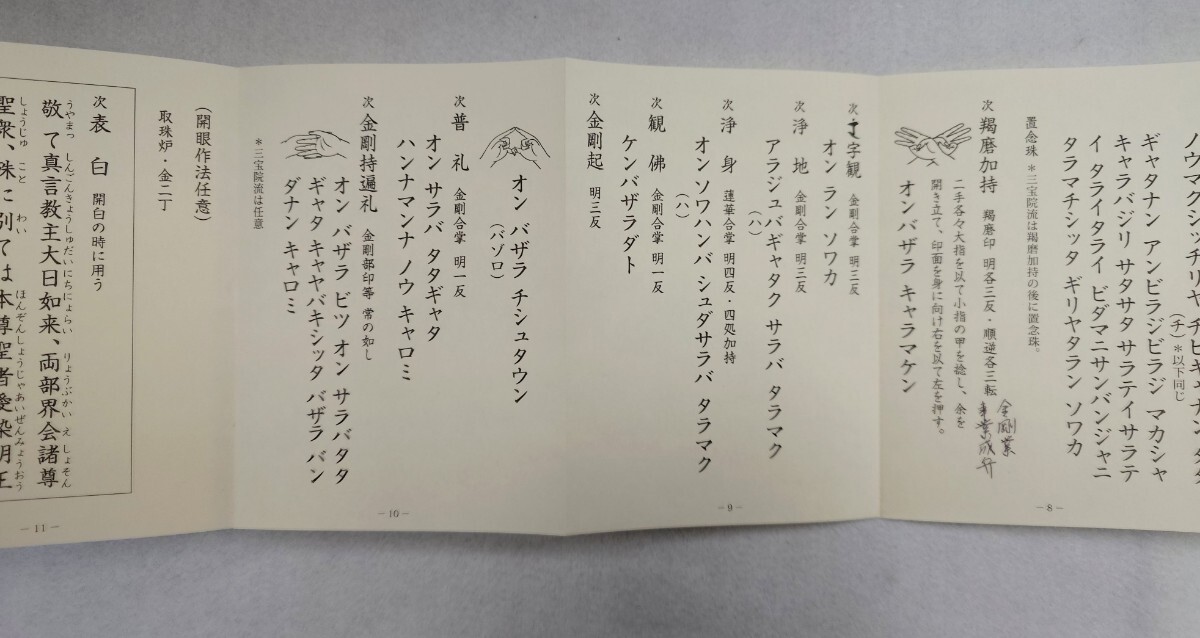 ノウマクシッチリヤ ヂビキャナン タタ
(チ)*以下同じ
ギャタナン アンビラジビラジ マカシャ
キャラバジリ サタサタ サラテイサラテ
イ タライタライ ビダマニサンバンジャニ
タラマチシッタ ギリヤタラン ソワカ
置念珠 *三宝院流は羯磨加持の後に置念珠。
次 羯磨加持 羯磨印 明各三反・順逆各三転
金剛業
二手各々大指を以て小指の甲を捻し、余を
開き立て、印面を身に向け右を以て左を押す。
オンバザラ キャラマケン
-8-
字観 金剛合掌 明三反
オン ラン ソワカ
次 浄 地 金剛合掌 明三反
アラジュバギャタク サラバ タラマク
(ハ)
次 浄 身 蓮華合掌 明四反・四処加持
オンソワハンバ シュダサラバ タラマク
(ハ)
次 観 佛 金剛合掌 明一反
ケンバザラダト
次 金剛起 明三反
-9-
オン バザラ チシュタウン
(バゾロ)
次 普 礼 金剛合掌 明一反
オン サラバ タタギャタ
ハンナマンナ ノウ キャロミ
次 金剛持遍礼 金剛部印等 常の如し
オン バザラ ビツ オン サラバタタ
ギャタ キャヤバキシッタ バザラ バン
ダナン キャロミ
*三宝院流は任意
-10-
(開眼作法任意)
取珠炉・金二丁
次 表 白 開白の時に用う
敬て真言教主大日如来、両部界会諸尊
うやまっ しんごんきょうしゅだいにちにょらい りょうぶかい え しょそん
聖衆、殊に別ては本尊聖者愛染明王
しょうじゅ こと わい ほんぞんしょうじゃあいぜんみょうおう
-11-